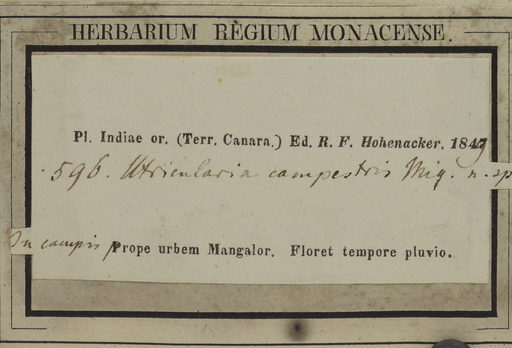 HERBARIUM REGIUM MONACENSE.
Pl. Indiae or. (Terr. Canara.) Ed. R. F. Hohenacker. 1847
596. Utricularia campestris Miq. n. sp
In campis prope urbem Mangalor. Floret tempore pluvio.